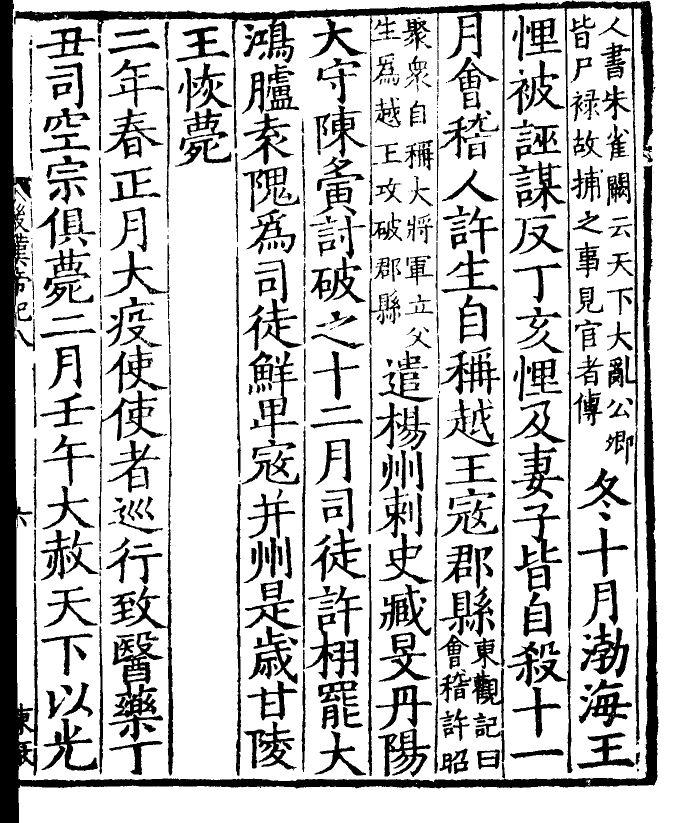 人書朱雀闕云天下大亂公卿
皆尸祿故捕之事見官者傳
冬十月渤海王
悝被誣謀反丁亥悝及妻子皆自殺十一
月會稽人許生自稱越王寇郡縣
東觀記曰
會稽許昭
聚衆自稱大將軍立父
生爲越王攻破郡縣
遣楊州刺史臧旻丹陽
大守陳夤討破之十二月司徒許栩罷大
鴻臚袁隗爲司徒鮮卑寇并州是歲甘陵
王恢薨
二年春正月大疫使使者巡行致醫藥丁
丑司空宗俱薨二月壬午大赦天下以光
後漢帝紀八
六